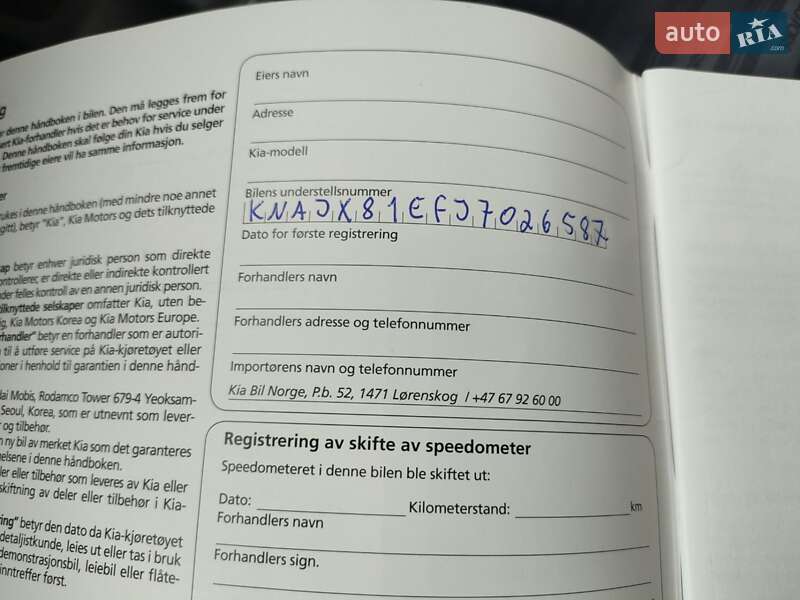 auto RIA .com
g
r denne håndboken i bilen. Den må legges frem for
ert Kia-forhandler hvis det er behov for service under
Denne håndboken skal følge din Kia hvis du selger
fremtidige eiere vil ha samme informasjon.
er
rukes i denne håndboken (med mindre noe annet
gitt), betyr "Kia", Kia Motors og dets tilknyttede
ap betyr enhver juridisk person som direkte
ontrollerer, er direkte eller indirekte kontrollert
nder felles kontroll av en annen juridisk person.
tilknyttede selskaper omfatter Kia, uten be-
g, Kia Motors Korea og Kia Motors Europe.
rhandler" betyr en forhandler som er autori-
til å utføre service på Kia-kjøretøyet eller
oner i henhold til garantien i denne hånd-
dai Mobis, Rodamco Tower 679-4 Yeoksam-
Seoul, Korea, som er utnevnt som lever-
r og tilbehør.
n ny bil av merket Kia som det garanteres
elsene i denne håndboken.
ler eller tilbehør som leveres av Kia eller
skiftning av deler eller tilbehør i Kia-
ring" betyr den dato da Kia-kjøretøyet
detaljistkunde, leies ut eller tas i bruk
demonstrasjonsbil, leiebil eller flåte-
inntreffer først.
Eiers navn
Adresse
Kia-modell
Bilens understellsnummer
KNAJX81EFJ7026587
Dato for første registrering
Forhandlers navn
Forhandlers adresse og telefonnummer
Importørens navn og telefonnummer
Kia Bil Norge, P.b. 52, 1471 Lørenskog / +47 67 92 60 00
Registrering av skifte av speedometer
Speedometeret i denne bilen ble skiftet ut:
Dato: Kilometerstand: km
Forhandlers navn
Forhandlers sign.